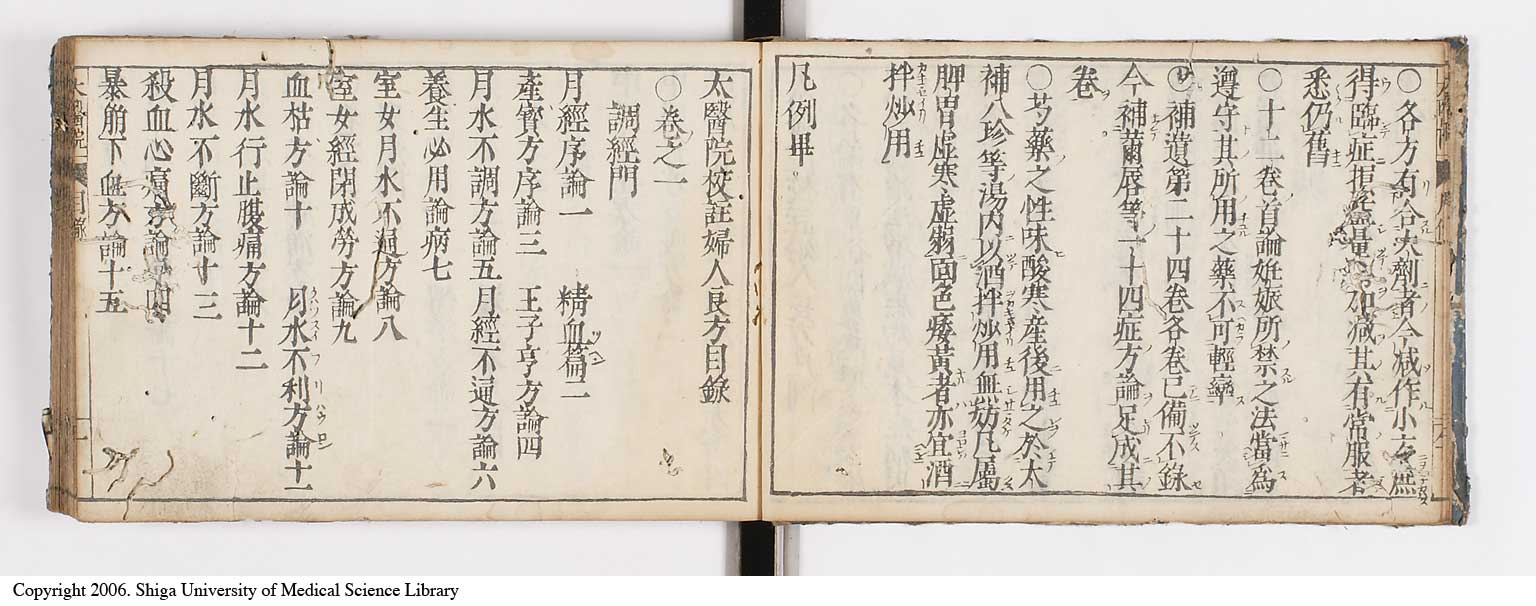 ○各方有合大劑者今减作小
得臨症拒 量 加减其有常服者
悉仍舊
○十二卷首論姙娠所禁之法當為
遵守其所用之藥不可輕變
○補遺第二十四卷各卷已備不錄
今補繭唇等一十四症方論足成其
卷
○芍藥之性味酸寒産後用之於太
補八珍等湯内以酒拌炒用無妨凡屬
脾胃虚寒虚弱面色痿黃者亦宜酒
拌炒用
凡例畢
太醫院校註婦人良方目錄
○卷之一
調經門
月經序論一　精血篇二
産寳方序論三　王子亨方論四
月水不調方論五月經不通方論六
養生必用論病七
室女月水不通方論八
室女經閉成勞方論九
血枯方論十　月水不利方論十一
月水行止腹痛方論十二
月水不斷方論十三
殺血心痛方論十四
暴崩下血方論十五
目錄
Copyright 2006. Shiga University of Medical Science Library